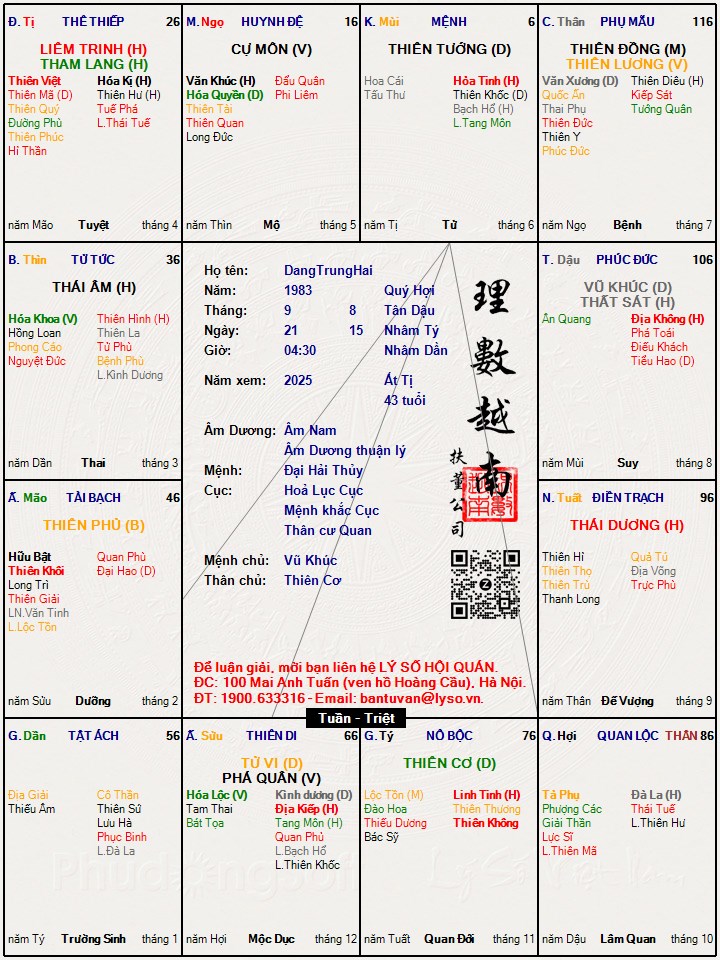 Đ. Tị THÊ THIẾP 26
LIÊM TRINH (H)
THAM LANG (H)
Thiên Việt Hóa Kị (H)
Thiên Mã (D) Thiên Hư (H)
Thiên Quý Tuế Phá
Đường Phù L.Thái Tuế
Thiên Phúc
Hỉ Thần
năm Mão Tuyệt tháng 4
M. Ngọ HUYNH ĐỆ 16
CỰ MÔN (V)
Văn Khúc (H) Đẩu Quân
Hóa Quyền (D) Phi Liêm
Thiên Tài
Thiên Quan
Long Đức
năm Thìn Mộ tháng 5
K. Mùi MỆNH 6
THIÊN TƯỚNG (D)
Hoa Cái Hỏa Tinh (H)
Tấu Thư Thiên Khốc (D)
Bạch Hổ (H)
L.Tang Môn
năm Tị Tử tháng 6
C. Thân PHỤ MẪU 116
THIÊN ĐỒNG (M)
THIÊN LƯƠNG (V)
Văn Xương (D) Thiên Diêu (H)
Quốc Ấn Kiếp Sát
Thai Phụ Tướng Quân
Thiên Đức
Thiên Y
Phúc Đức
năm Ngọ Bệnh tháng 7
B. Thìn TỬ TỨC 36
THÁI ÂM (H)
Hóa Khoa (V) Thiên Hình (H)
Hồng Loan Thiên La
Phong Cáo Tử Phù
Nguyệt Đức Bệnh Phù
L.Kình Dương
năm Dần Thai tháng 3
Họ tên: DangTrungHai
Năm: 1983 Quý Hợi
Tháng: 9 8 Tân Dậu
Ngày: 21 15 Nhâm Tý
Giờ: 04:30 Nhâm Dần
Năm xem: 2025 Ất Tị
43 tuổi
Âm Dương: Âm Nam
Âm Dương thuận lý
Mệnh: Đại Hải Thủy
Cục: Hoả Lục Cục
Mệnh khắc Cục
Thân cư Quan
Mệnh chủ: Vũ Khúc
Thân chủ: Thiên Cơ
理數越南
扶董公司
Z
Để luận giải, mời bạn liên hệ LÝ SỐ HỘI QUÁN.
ĐC: 100 Mai Anh Tuấn (ven hồ Hoàng Cầu), Hà Nội.
ĐT: 1900.633316 - Email: bantuvan@lyso.vn.
Tuần - Triệt
T. Dậu PHÚC ĐỨC 106
VŨ KHÚC (D)
THẤT SÁT (H)
Ân Quang Địa Không (H)
Phá Toái
Điếu Khách
Tiểu Hao (D)
năm Mùi Suy tháng 8
Ấ. Mão TÀI BẠCH 46
THIÊN PHỦ (B)
Hữu Bật Quan Phù
Thiên Khôi Đại Hao (D)
Long Trì
Thiên Giải
LN.Văn Tinh
L.Lộc Tồn
năm Sửu Dưỡng tháng 2
N. Tuất ĐIỀN TRẠCH 96
THÁI DƯƠNG (H)
Thiên Hỉ Quả Tú
Thiên Thọ Địa Võng
Thiên Trù Trực Phù
Thanh Long
năm Thân Đế Vượng tháng 9
G. Dần TẬT ÁCH 56
Địa Giải Cô Thần
Thiếu Âm Thiên Sứ
Lưu Hà
Phục Binh
L.Đà La
năm Tý Trường Sinh tháng 1
Ấ. Sửu THIÊN DI 66
TỬ VI (D)
PHÁ QUÂN (V)
Hóa Lộc (V) Kình dương (D)
Tam Thai Địa Kiếp (H)
Bát Tọa Tang Môn (H)
Quan Phủ
L.Bạch Hổ
L.Thiên Khốc
năm Hợi Mộc Dục tháng 12
G. Tý NÔ BỘC 76
THIÊN CƠ (D)
Lộc Tồn (M) Linh Tinh (H)
Đào Hoa Thiên Thương
Thiếu Dương Thiên Không
Bác Sỹ
năm Tuất Quan Đới tháng 11
Q. Hợi QUAN LỘC THÂN 86
Tả Phụ Đà La (H)
Phượng Các Thái Tuế
Giải Thần L.Thiên Hư
Lực Sĩ
L.Thiên Mã
năm Dậu Lâm Quan tháng 10